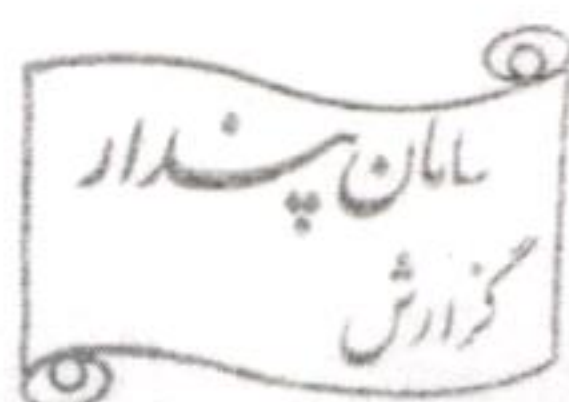 سامان پندار
گزارش